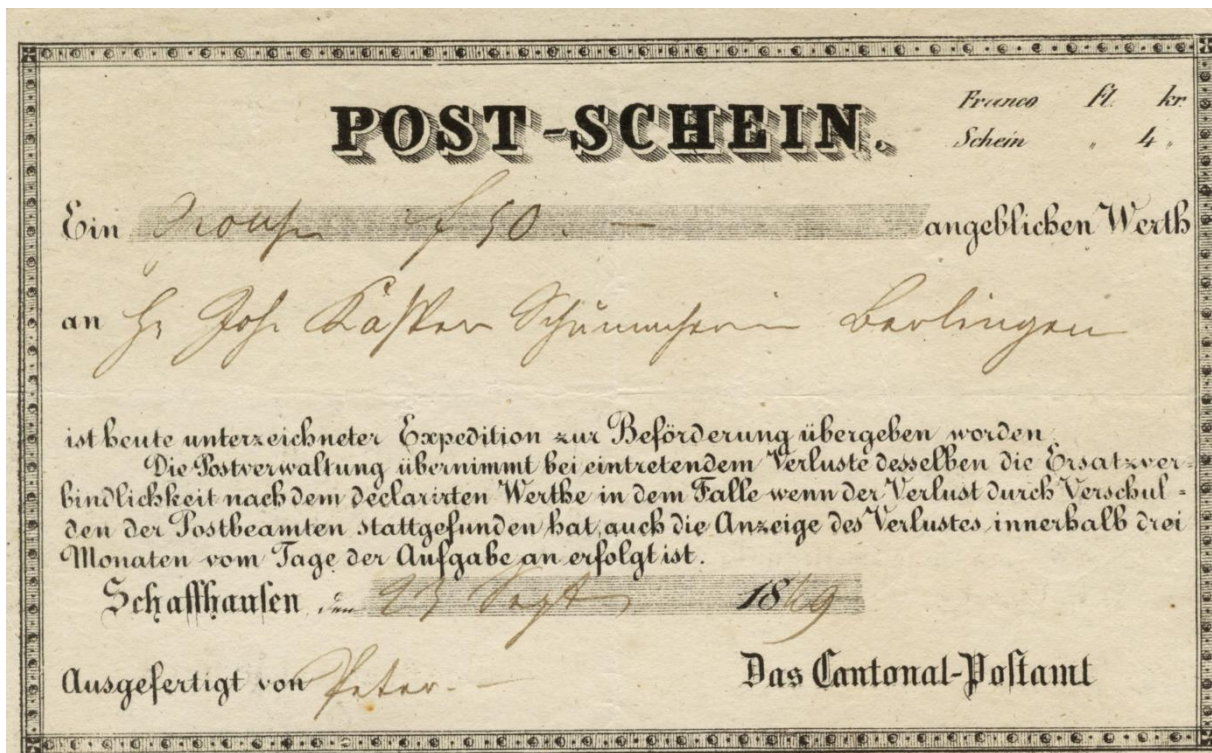 Franco Fl. kr.
POST-SCHEIN.
Schein " 4 "
Ein f 50. — angeblichen Werth
an Hr Joh. Kasper Berlingen
ist heute unterzeichneter Expedition zur Beförderung übergeben worden.
Die Postverwaltung übernimmt bei eintretendem Verluste desselben die Ersatzver-
bindlichkeit nach dem declarirten Werthe in dem Falle wenn der Verlust durch Verschul-
den der Postbeamten stattgefunden hat, auch die Anzeige des Verlustes innerhalb drei
Monaten vom Tage der Aufgabe an erfolgt ist.
Schaffhausen, den Sept 18
Ausgefertigt von Peter. — Das Cantonal-Postamt